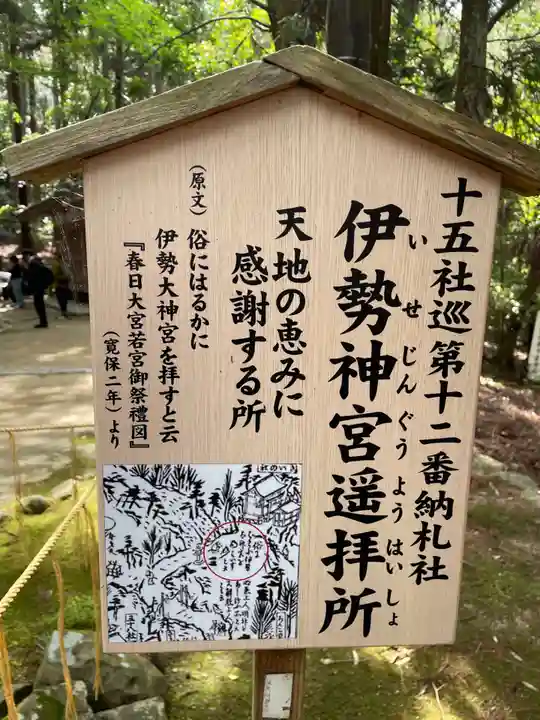 十五社巡第十二番納札社
伊勢神宮遥拝所
いせじんぐうようはいしょ
天地の恵みに
感謝する所
（原文）俗にはるかに
伊勢大神宮を拝すと云
『春日大宮若宮御祭禮図』
（寛保二年）より